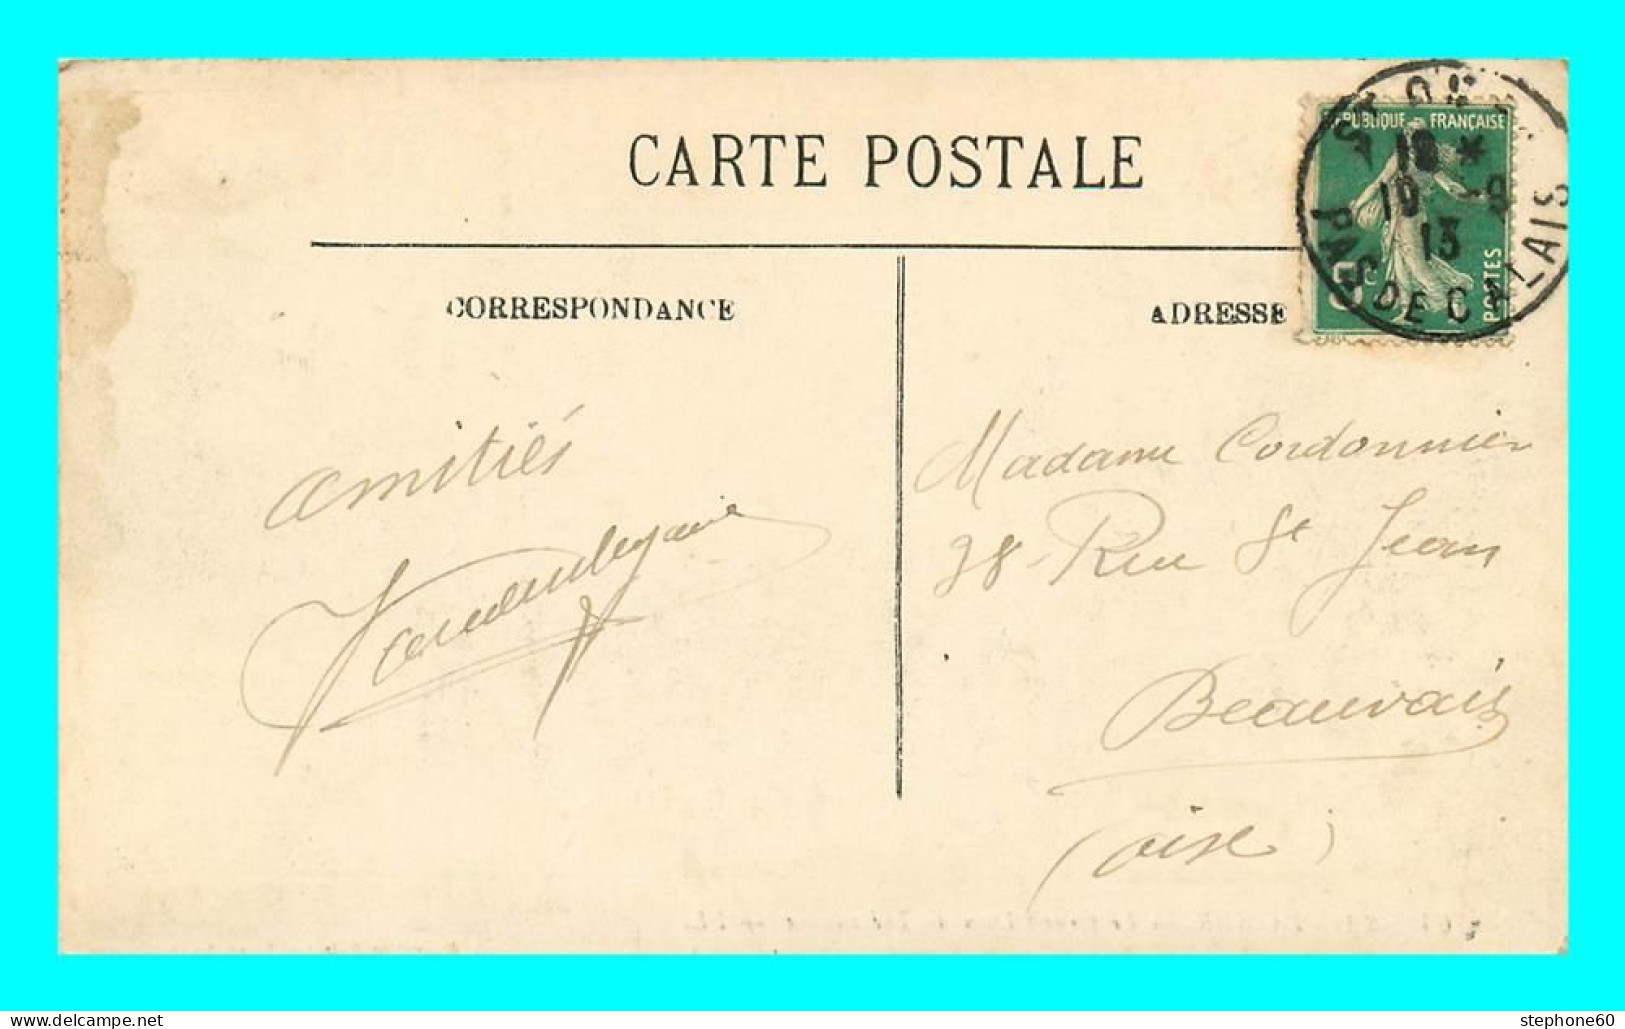 CARTE POSTALE
CORRESPONDANCE
ADRESSE
RÉPUBLIQUE FRANÇAISE
5c
POSTES
10
13
PAS DE CALAIS
amitiés
Madame Cordonnier
38 Rue St Jean
Beauvais
(oise)
www.delcampe.net
stephone60